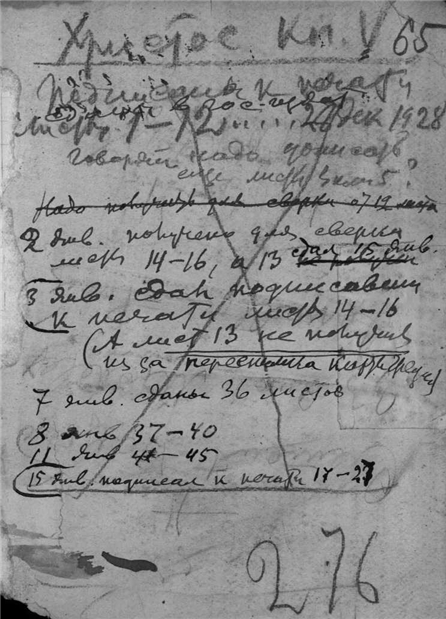 Христос Кн. V 65
Подписаны к печати
сданы в Гос-издат
листы 1–12.... 24 Дек 1928
говорят надо дописать
еще
Надо получить для сверки от 12 листа
2 янв. получено для сверки
листы 14–16, а 13 сдал 15 янв.
3 янв. сдал подписаны
к печати листы 14–16
(А лист 13 не получил
из за пересылки
7 янв. сданы 36 листов
8 янв 37–40
11 янв 41–45
15 янв. подписал к печати 17–27
276